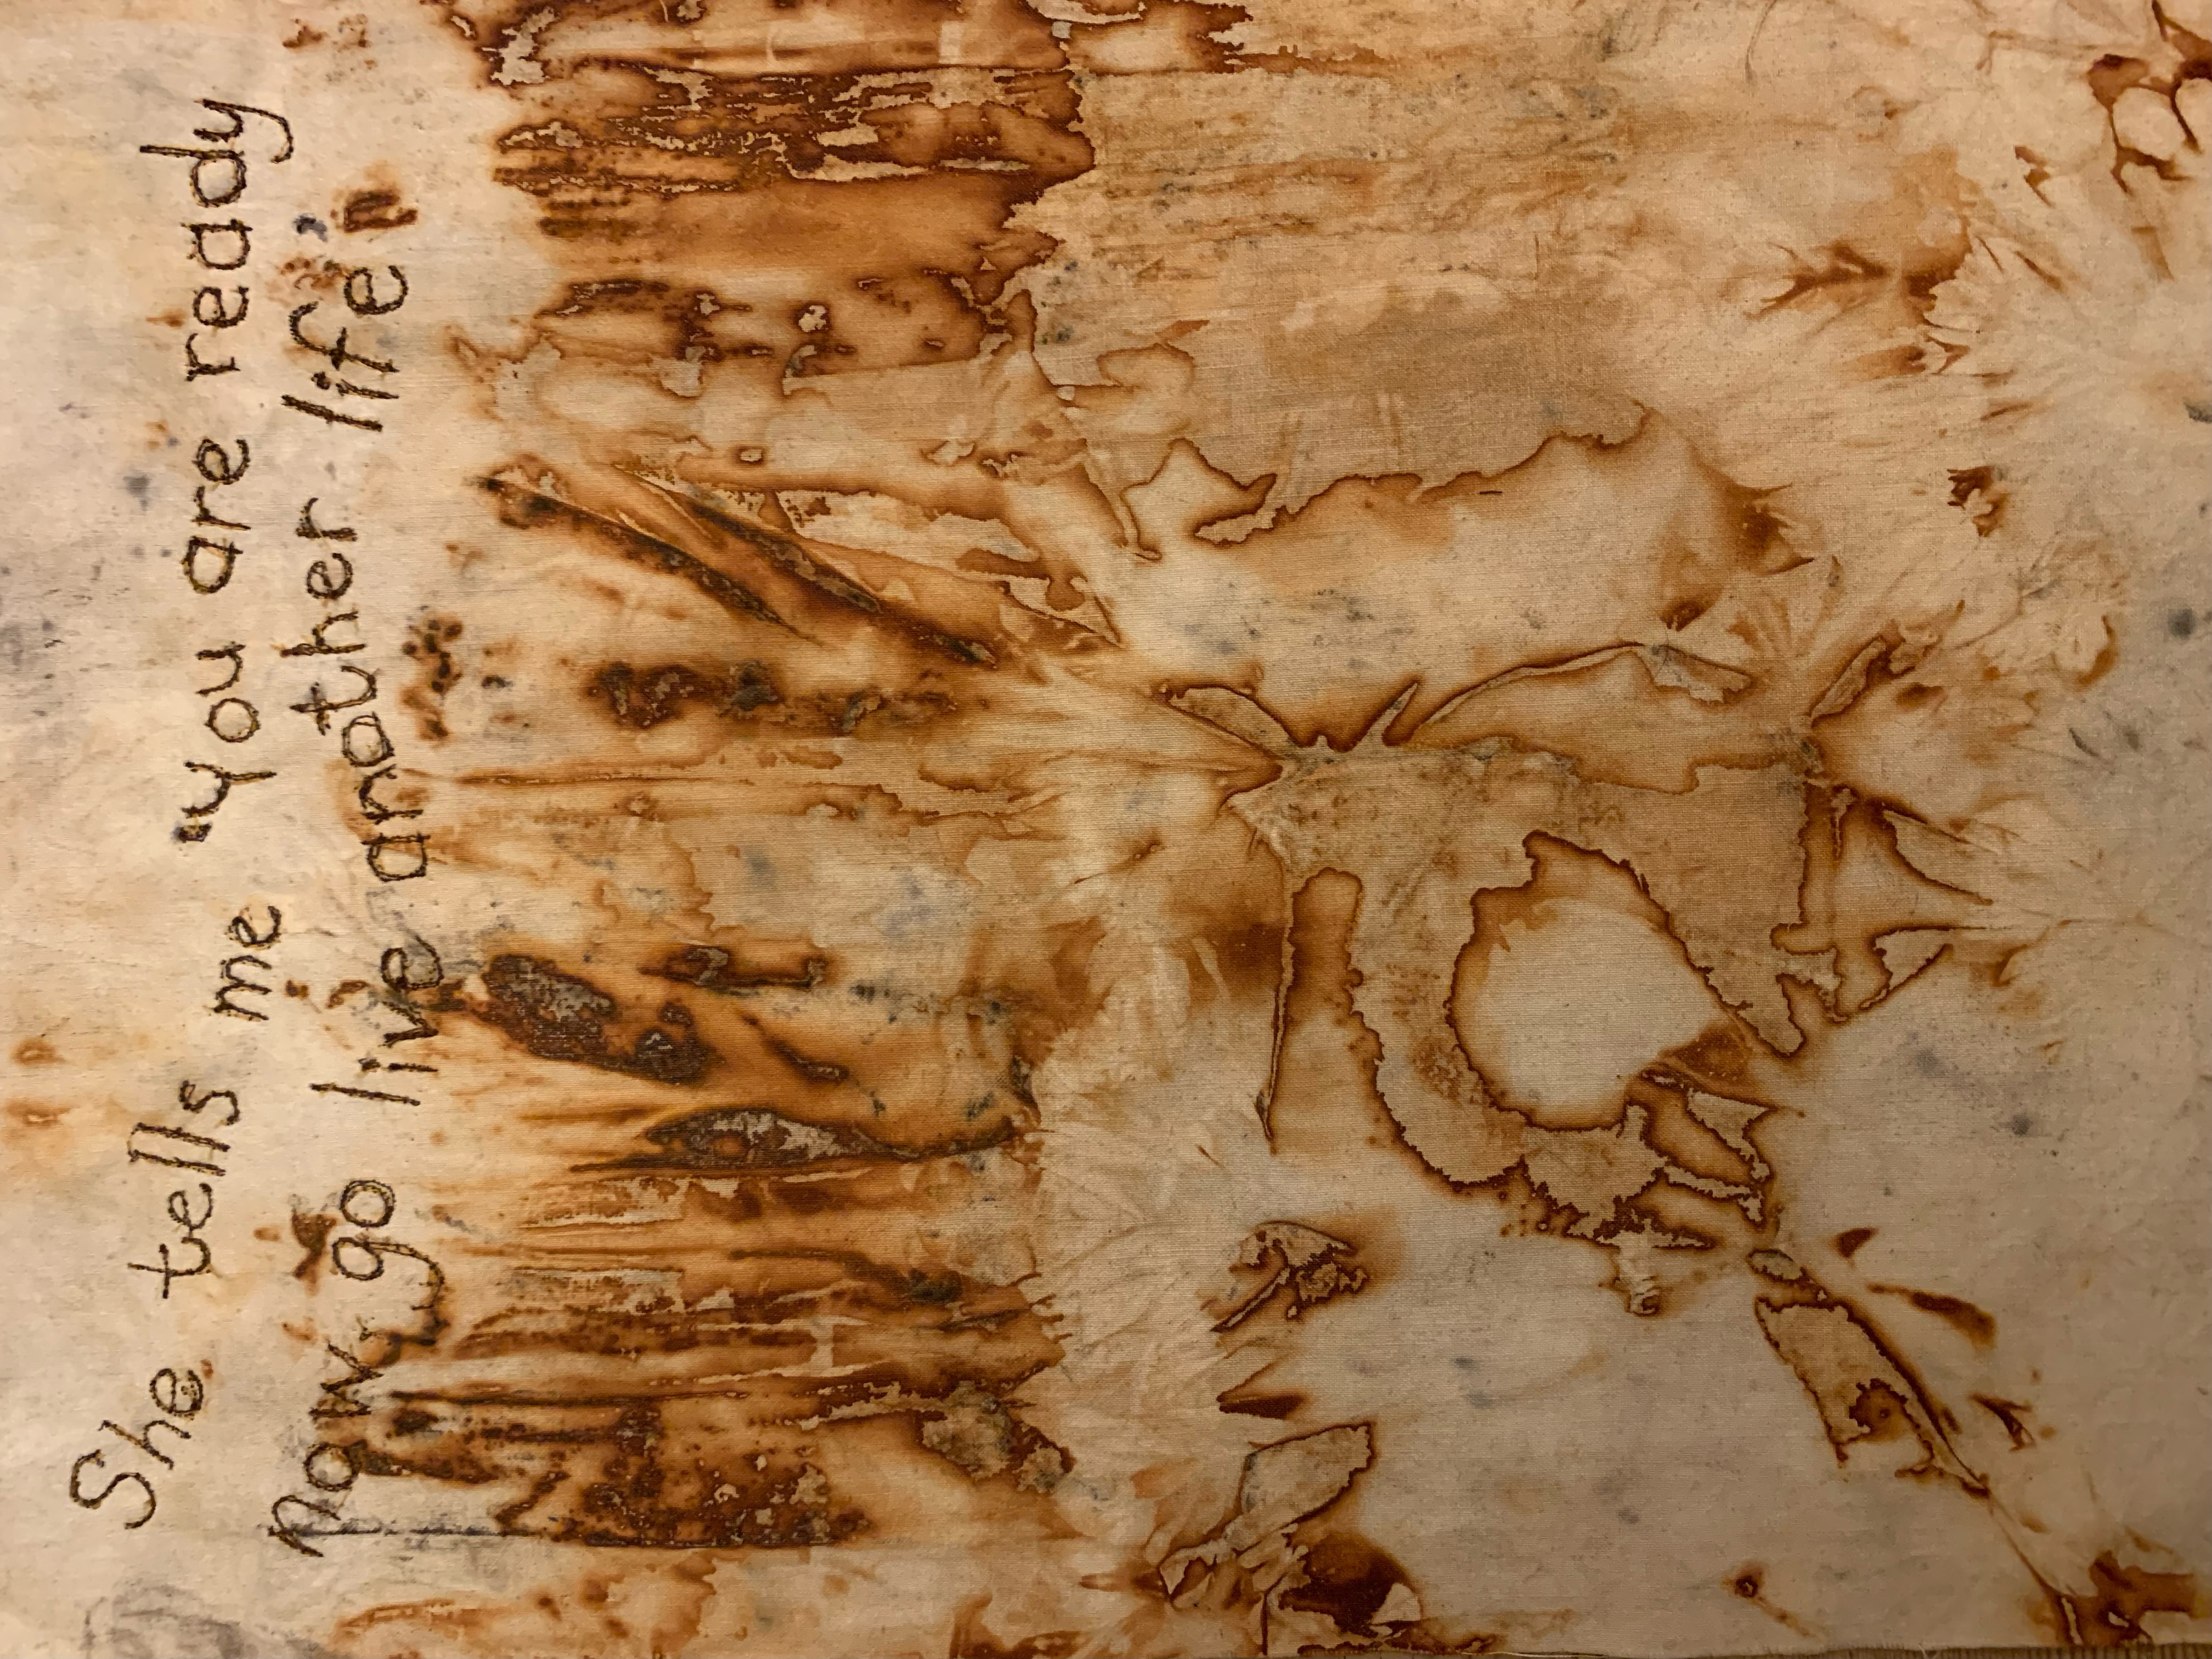 She tells me "you are ready
now, go live another life"